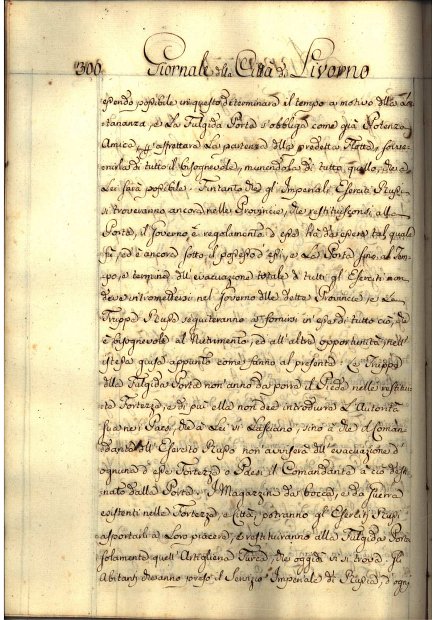 306. Giornale della Città di Livorno
essendo possibile in questo determinare il tempo a motivo della lon
tananza, e La Fulgida Porta s'obbliga come già Potenza
Amica affrettare La partenza della predetta Flotta, sovve
nirla di tutto il bisognevole, munendola di tutto quello, che a
Lei sarà possibile. Fintanto che gl'Imperiali Eserciti Russi
si troveranno ancora nelle Provincie, che restituisconsi alla
Porta, il Governo e regolamento d'esse ha da essere tal quale
fù, ed è ancora sotto il possesso d'essi, e La Porta sino al Tem
po, e termine dell'evacuazione totale di tutti gl'Eserciti non
deve intromettersi nel Governo delle dette Provincie, e Le
Truppe Russe seguiteranno a fornirsi in esse di tutto ciò, che
è bisognevole al Nutrimento, ed all'altre opportunità, nell'
istessa guisa appunto come fanno al presente. Le Truppe
della Fulgida Porta non anno da porre il Piede nelle restitui
te Fortezze, e di più ella non dee introdurre L'Autorità
sua nei Paesi, che a Lei si Lasciano, sino a che il Coman
dante dell'Esercito Russo non avviserà dell'evacuazione d'
ognuna d'esse Fortezze o Paesi il Comandante a ciò desti
nato dalla Porta. I Magazzini da bocca, e da Guerra
esistenti nelle Fortezze, e Città, potranno gl'Eserciti Russi
asportarli a Loro piacere, e restituiranno alla Fulgida Porta
solamente quell'Artiglieria Turca, che oggidì vi si trova. Gli
Abitanti che anno preso il Servizio Imperiale di Russia, d'ogni